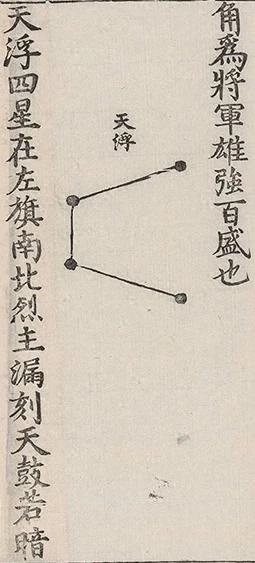 角為將軍雄強百盛也
天浮
天浮四星在左旗南北烈主漏刻天鼓若暗